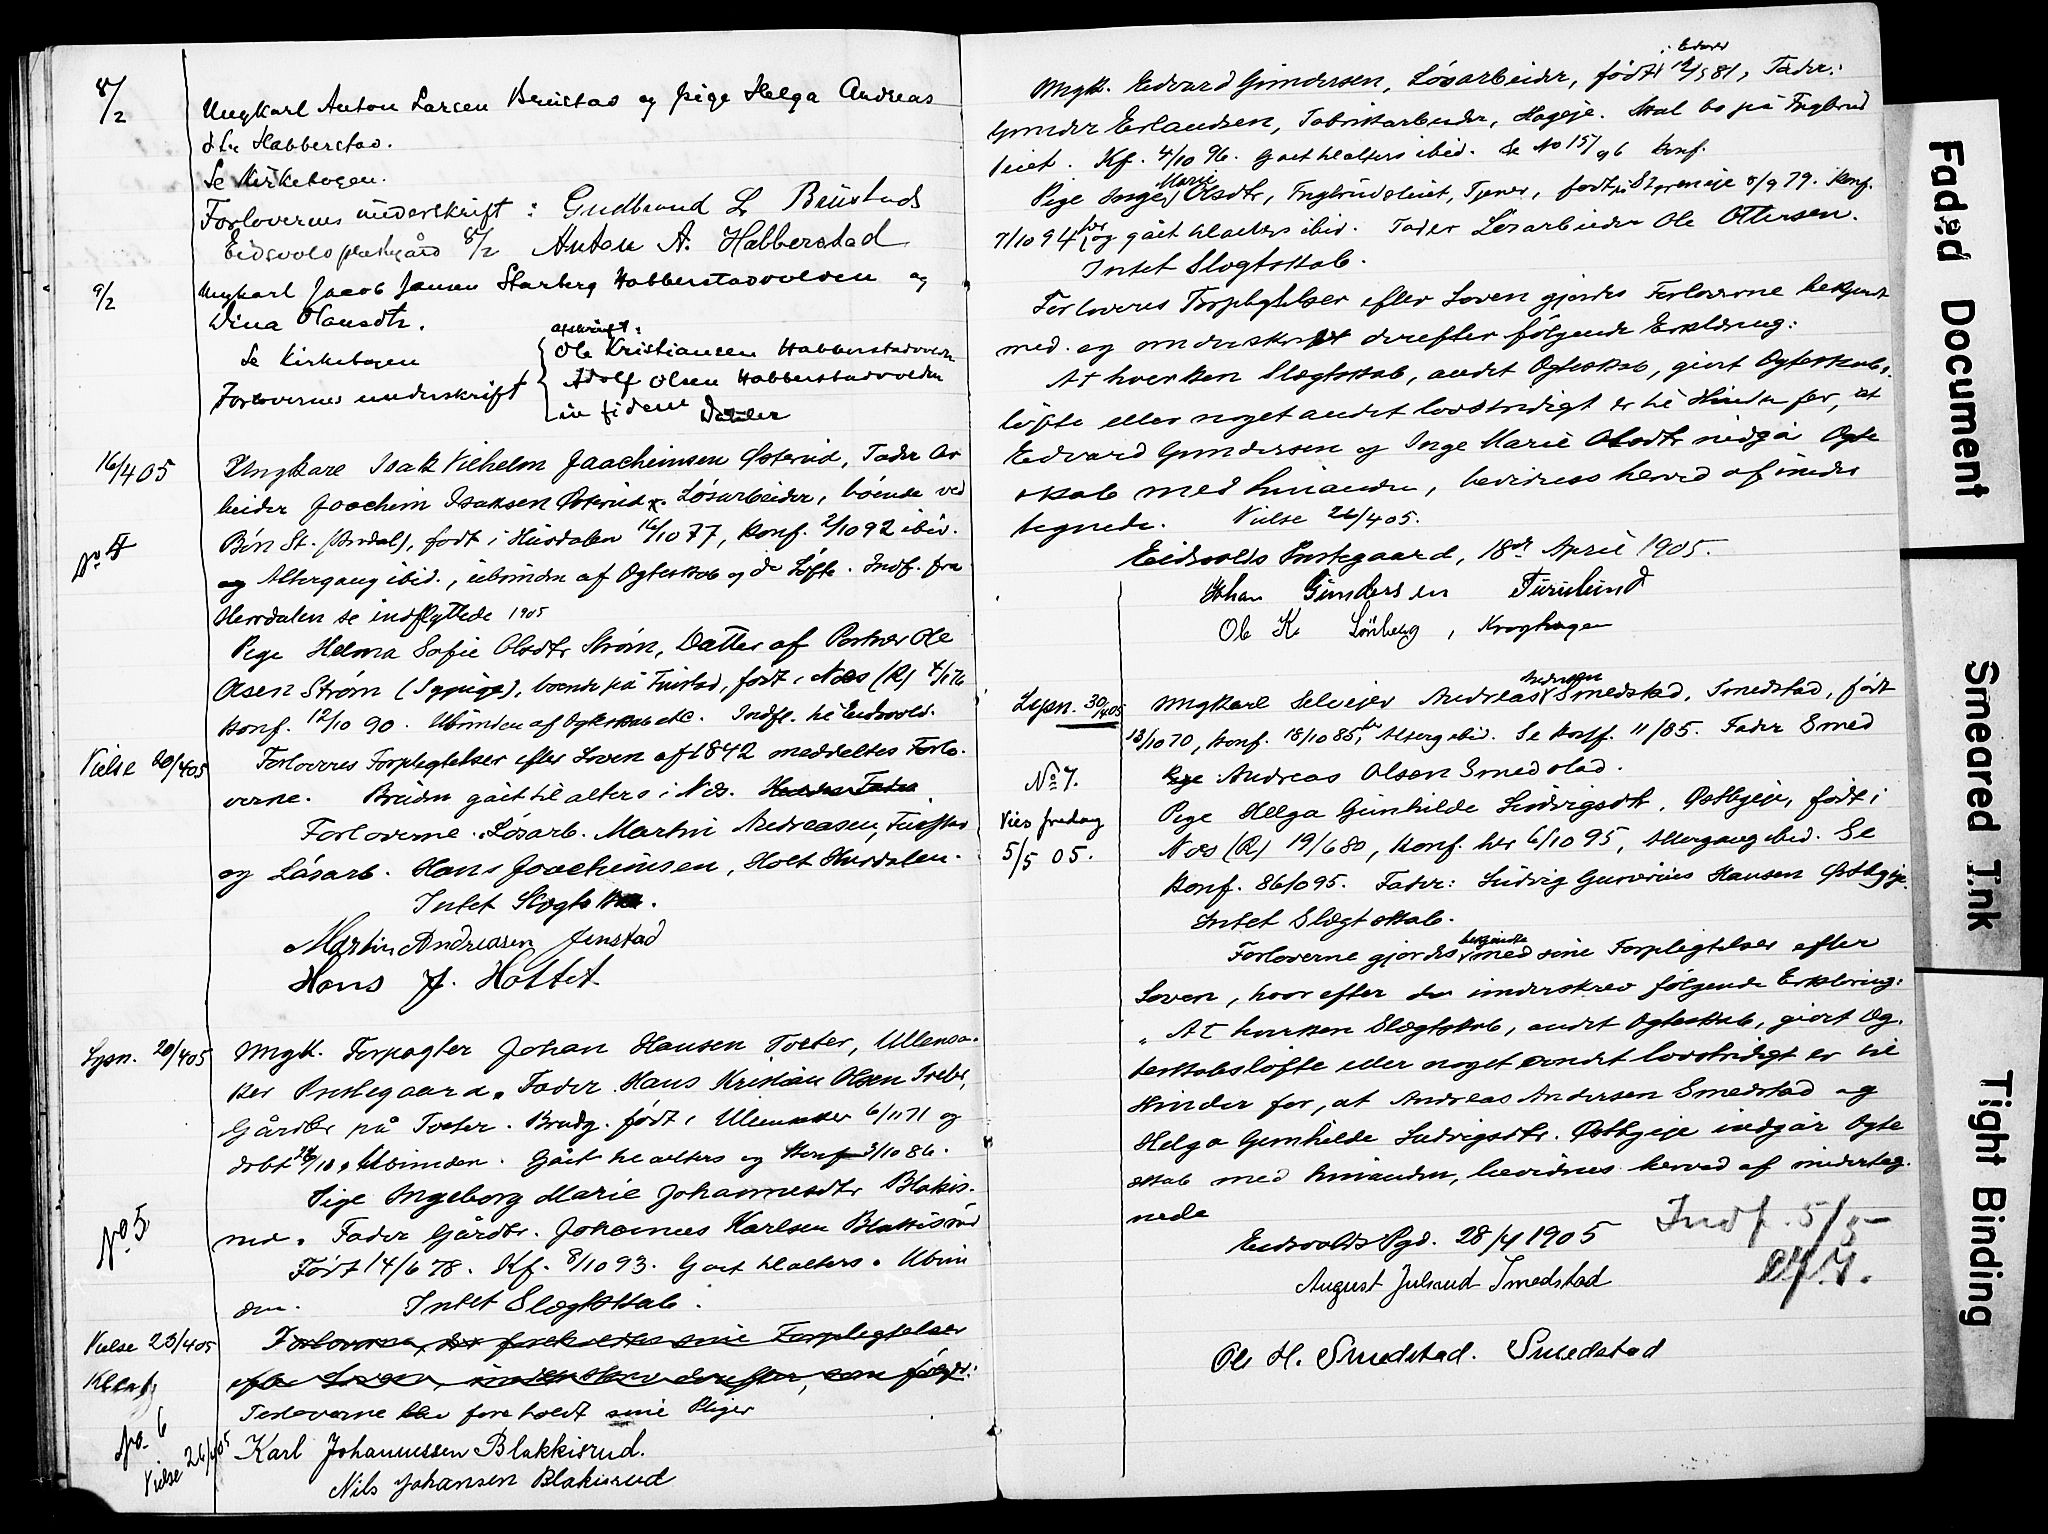 8/2
Ungkarl Anton Larsen Brustad og pige Helga Andreas
dtr Habberstad.
Se Kirkebogen.
Forlovernes underskrift: Gudbrand L. Brustad
Eidsvolds præstegård 8/2 Anton A. Habberstad
9/2
Ungkarl Jacob Jansen Habberstadvolden og
Dina Olausdtr.
Se Kirkebogen
Forlovernes underskrift
afskrift:
Ole Kristiansen Habberstadvolden
Adolf Olsen Habberstadvolden
in fidem
16/4 05
Ungkarl Isak Vilhelm Joachimsen Østerud, Fader Ar
beider Joachim Isaksen Østerud. Løsarbeider, boende ved
Bøn St. født i Hurdalen 16/10 77, Konf. 2/10 92 ibid.
og Altergang ibid., ubunden af Ogteskab og do Løfte. Indf. fra
Hurdalen se indflyttede 1905
Pige Helma Sofie Olsdtr Strøm, Datter af Ole
Olsen Strøm (Sypige), boende på Finstad, født i Næs (R) 4/1 76
Konf. 12/10 90. Ubunden af Ogteskab etc. Indfl. til Eidsvold.
Vielse 20/4 05
Forloveres Forplegtelser efter Loven af 1842 meddeltes Forlo-
verne. Bruden gået til alters i Næs.
Forloverne. Løsarb. Martin Andreasen, Finstad
og Løsarb. Hans Joachimsen, Holt Hurdalen.
Intet Slegtskab.
Martin Andreasen Finstad
Hans J. Holtet
Lysn. 20/4 05
Ungk. Forpagter Johan Hansen Tveter, Ullensa-
ker Prestegaard. Fader Hans Kristian Olsen Tveter,
Gårdbr på Tveter. Brudg. født i Ullensaker 6/11 71 og
døbt 26/12. Ubunden. Gået til alters og Konf 3/10 86.
No 5
Pige Ingeborg Marie Johannesdtr Blakis-
rud. Fader Gårdbr. Johannes Karlsen Blakkisrud
Født 14/6 78. Kf. 8/10 93. Gaet til alters. Ubun
den. Intet Slegtskab.
Vielse 23/4 05
Forloverne, der foreholdtes sine Forplegtelser
efter Loven, underskrev derefter, som følger:
Forloverne blev foreholdt sine Pliger
No. 6
Vielse 26/4 05
Karl Johannessen Blakkisrud.
Nils Johansen Blakisrud
Ungk. Edvard Gundersen, Løsarbeider, født i Eidsvold 12/5 81, Fader:
Gunder Erlandsen, Fabrikarbeider, Hageje. Skal bo på Fngbrud
eiet. Kf. 4/10 96. Gaet til alters ibid. Se No 157 96 Konf.
Pige Inge Marie Olsdtr, Tjener, født på Stgreneje 8/9 79. Konf.
7/10 94 her og gået til alters ibid. Fader Løsarbeider Ole Ottersen.
Intet Slegtskab.
Forloveres Forplegtelser efter Loven gjordes Forloverne bekjendt
med og underskrevet derefter følgende Erklæring:
At hverken Slægtskab, andet Ogteskab, givet Ogteskabs-
løfte eller noget andet lovstridigt er til Hinder for, at
Edvard Gundersen og Inge Marie Olsdtr indgå Ogte
skab med hinanden, bevidnes herved af under
tegnede. Vielse 26/4 05.
Eidsvolds Prestegaard, 18de April 1905.
Johan Gundersen Furulund
Ole K. Lønberg, Kroghagen
Lysn. 30/4 05
Ungkarl Selveier Andreas Andersen Smedstad, Smedstad, født
13/10 70, Konf. 18/10 85, Alterg ibid. Se Konf. 11/85. Fader Smed
No 7.
Andreas Olsen Smedstad.
Vies fredag
5/5 05.
Pige Helga Gunhilde Ludvigsdtr, Østbyeje, født i
Næs (R) 19/6 80, Konf. her 6/10 95, Altergang ibid. Se
Konf. 86/95. Fader: Ludvig Gunerius Hansen Østbyeje.
Intet Slegtskab.
Forloverne gjordes bekjendte med sine Forplegtelser efter
Loven, hvorefter de underskrev følgende Erklæring:
" At hverken Slægtskab, andet Ogteskab, givet Og-
teskabsløfte eller noget andet lovstridigt er til
Hinder for, at Andreas Andersen Smedstad og
Helga Gunhilde Ludvigsdtr. Østbyeje indgår Ogte
skab med hinanden, bevidnes herved af underteg-
nede
Eidsvolds Pgd. 28/4 1905
Indf. 5/5
August Julsrud Smedstad
Ole H. Smedstad. Smedstad
Faded Document
Smeared Ink
Tight Binding